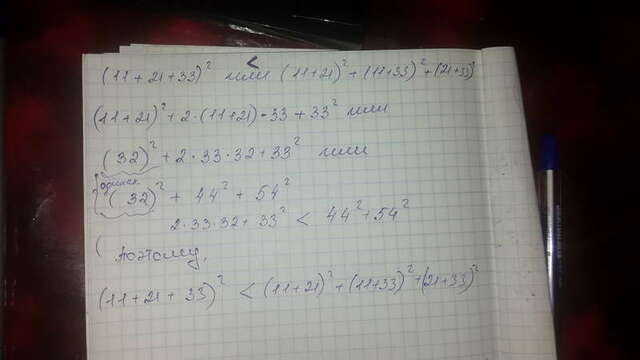 (11 + 21 + 33)² < или (11+21)² + (11+33)² + (21+33)²
(11+21)² + 2·(11+21)·33 + 33² или
(32)² + 2·33·32 + 33² или
(32)² + 44² + 54²
2·33·32 + 33² < 44² + 54²
поэтому,
(11 + 21 + 33)² < (11+21)² + (11+33)² + (21+33)²